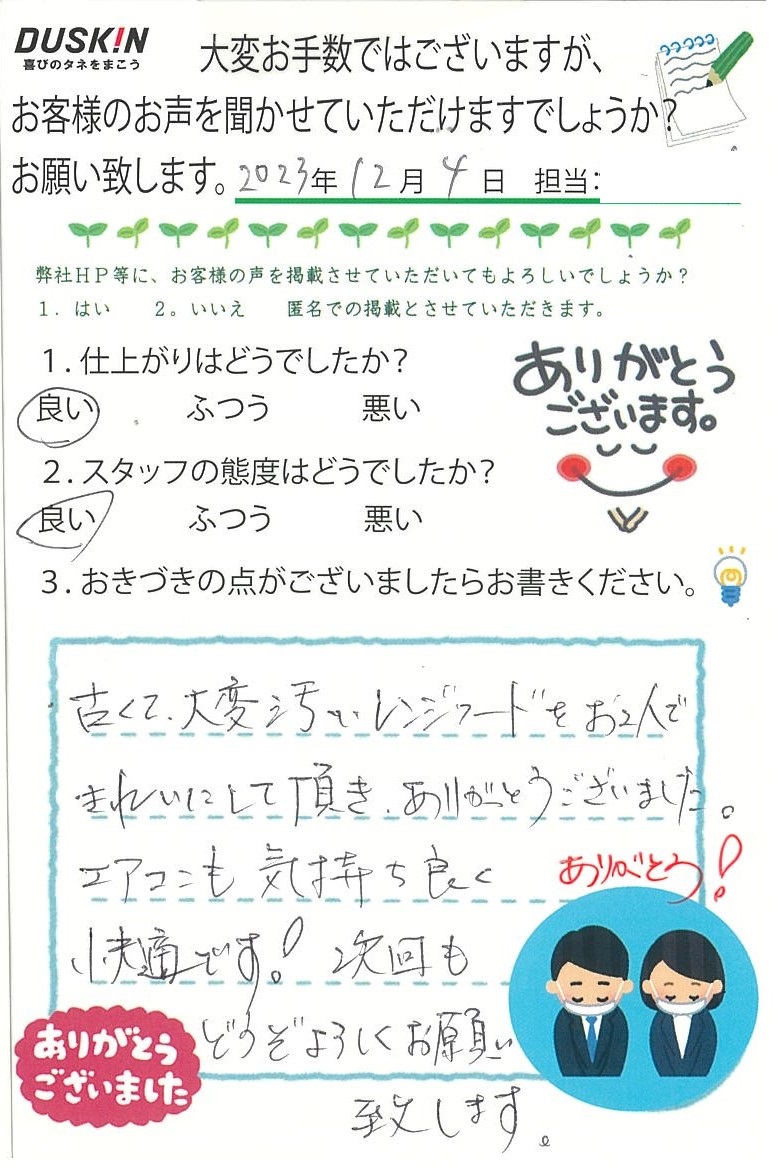 DUSK!N
喜びのタネをまこう
大変お手数ではございますが、
お客様のお声を聞かせていただけますでしょうか?
お願い致します。2023年 12月 4日 担当:
弊社HP等に、お客様の声を掲載させていただいてもよろしいでしょうか?
1. はい 2。いいえ 匿名での掲載とさせていただきます。
1.仕上がりはどうでしたか?
良い ふつう 悪い
ありがとう
ございます。
2.スタッフの態度はどうでしたか?
良い ふつう 悪い
3.おきづきの点がございましたらお書きください。
古くて、大変汚いレンジフードをお2人で
きれいにして頂き、ありがとうございました。
エアコンも気持ち良く
ありがとう!
快適です! 次回も
どうぞよろしくお願い
致します。
ありがとう
ございました